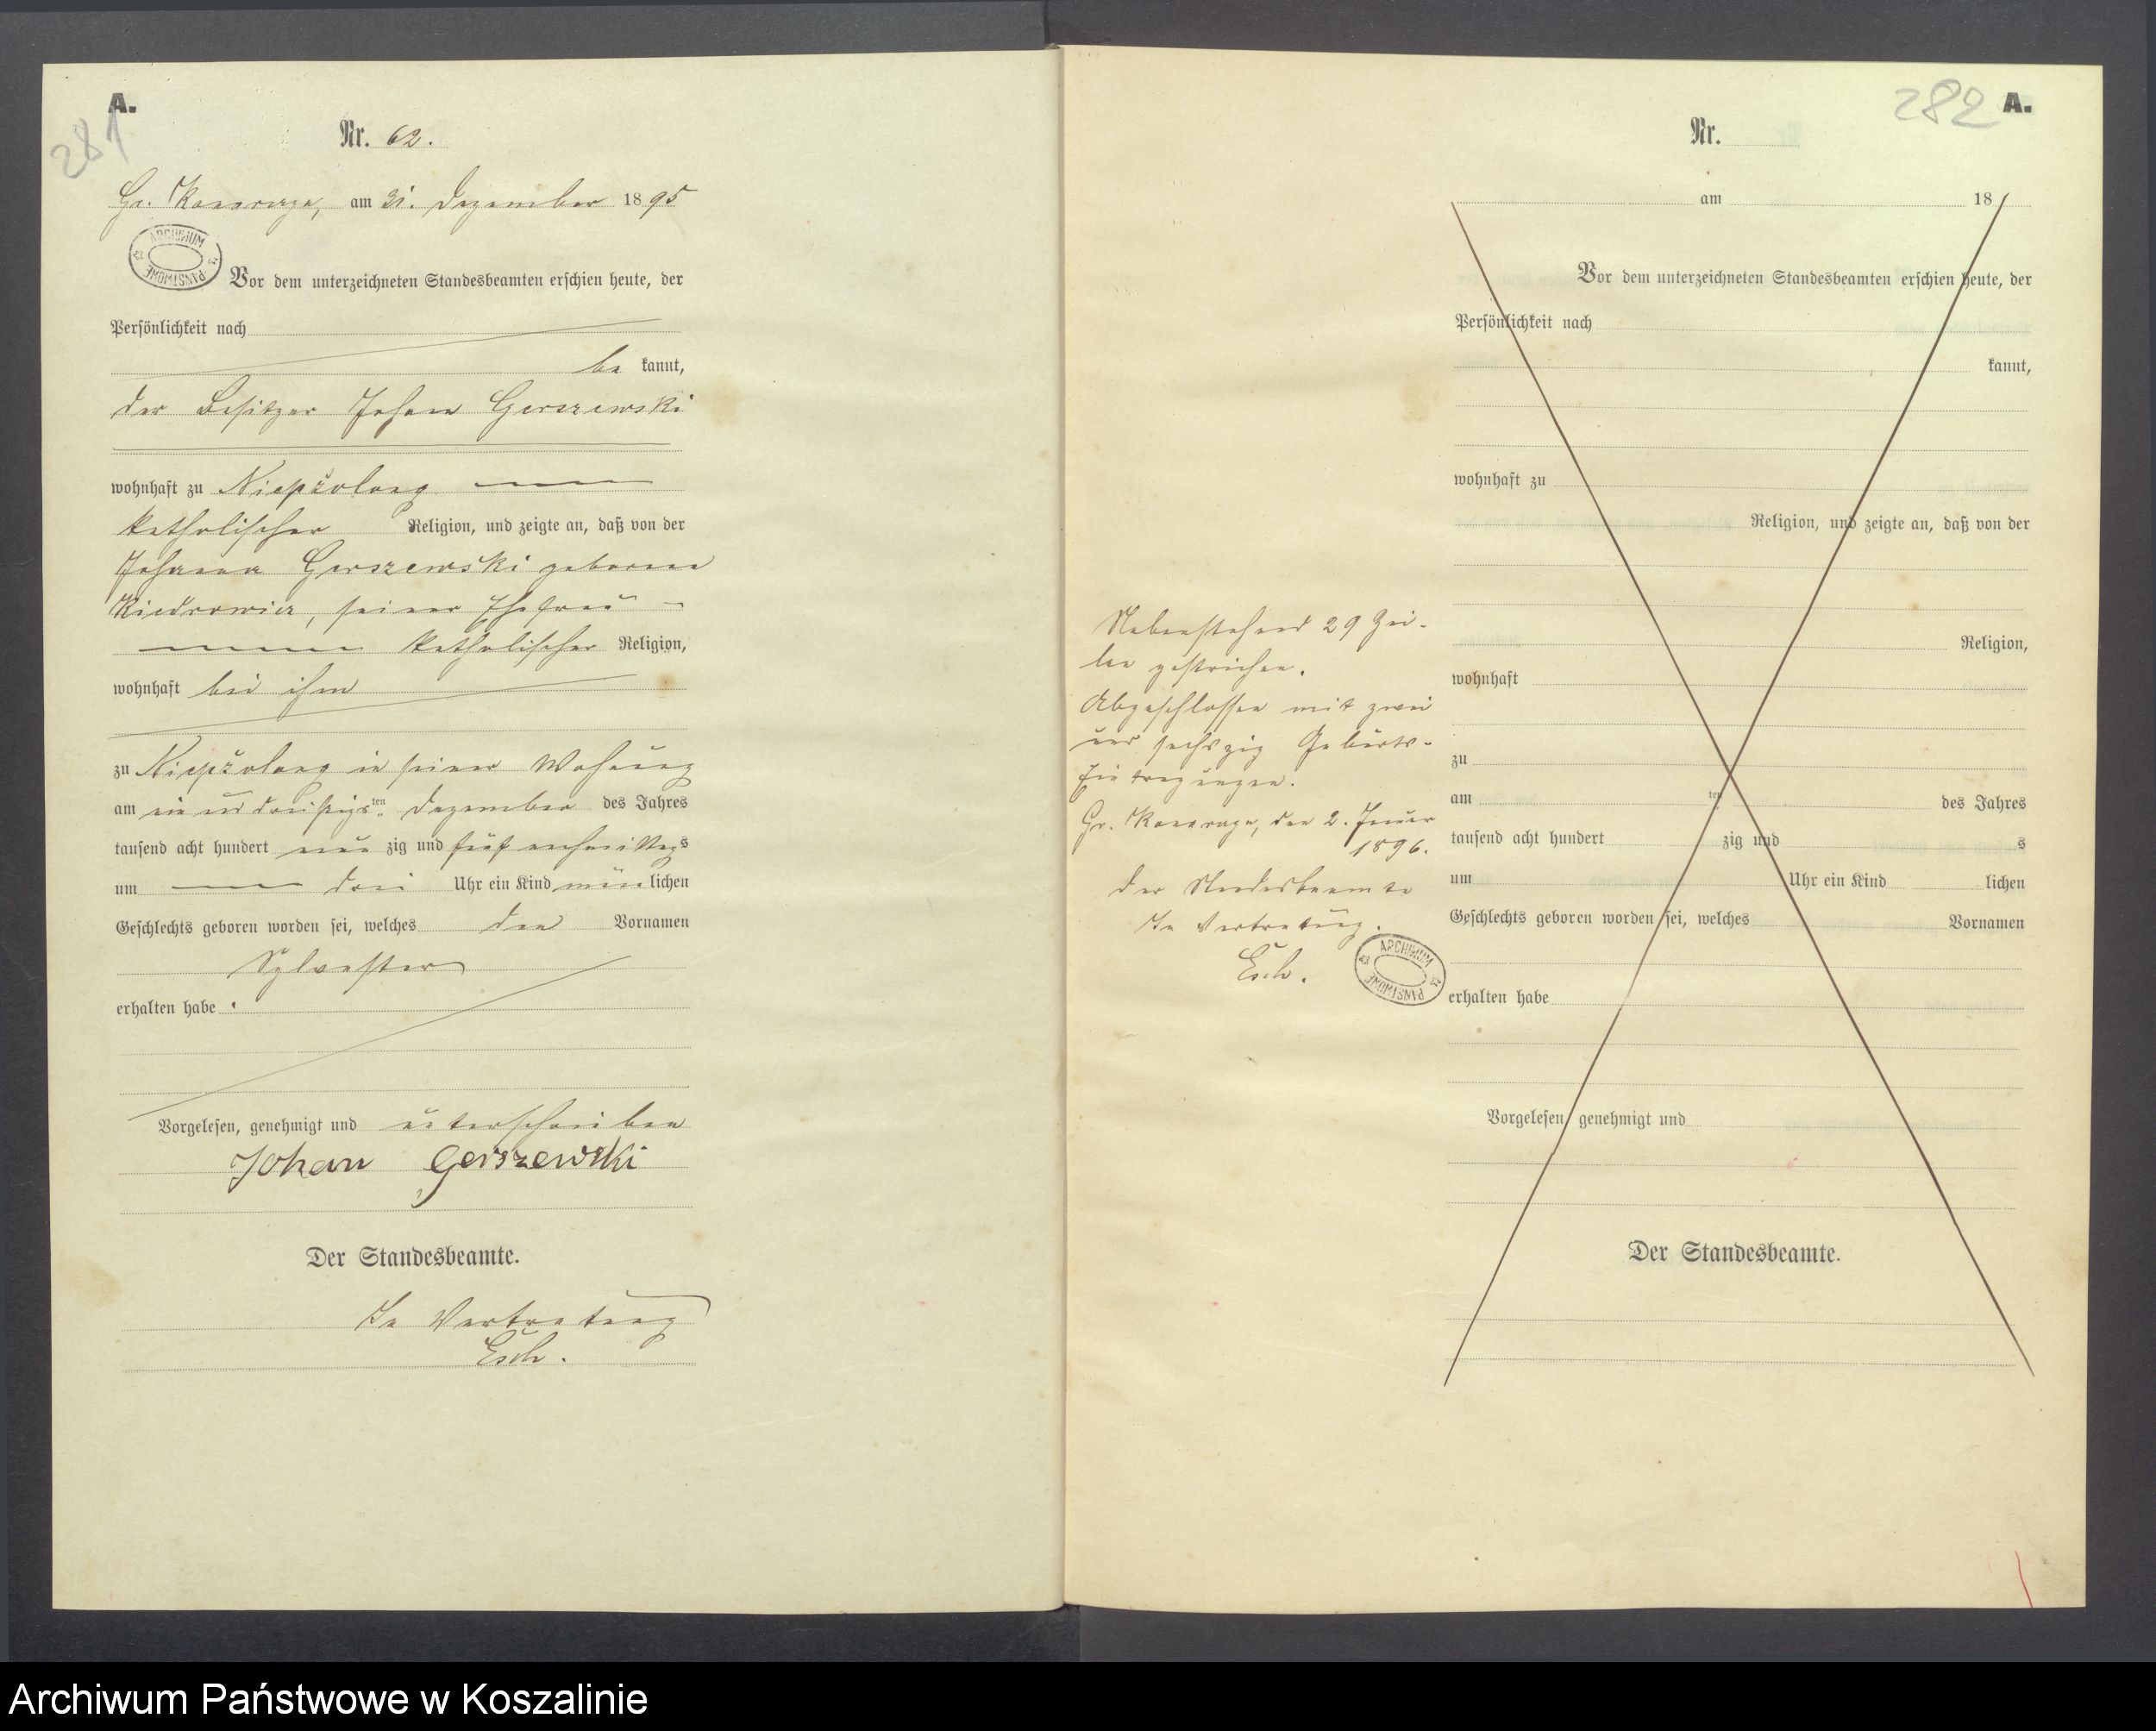 A.
281
Nr. 62.
Gr. Konarczyn, am 31. Dezember 1895
ARCHIWUM PAŃSTWOWE
Vor dem unterzeichneten Standesbeamten erschien heute, der
Persönlichkeit nach
be kannt,
der Besitzer Johann Gerszewski
wohnhaft zu
katholischer Religion, und zeigte an, daß von der
Johanna Gerszewski geborene
Kiedrowicz, seiner Ehefrau
katholischer Religion,
wohnhaft bei ihm
zu in seiner Wohnung
am ein und dreißigsten Dezember des Jahres
tausend acht hundert neun zig und fünf nachmittags
um drei Uhr ein Kind männlichen
Geschlechts geboren worden sei, welches den Vornamen
Sylvester
erhalten habe.
Vorgelesen, genehmigt und unterschrieben
Johan Gerszewski
Der Standesbeamte.
In Vertretung
Esch.
282
A.
Nr.
am 18
Vor dem unterzeichneten Standesbeamten erschien heute, der
Persönlichkeit nach
kannt,
wohnhaft zu
Religion, und zeigte an, daß von der
Religion,
wohnhaft
zu
am ten des Jahres
tausend acht hundert zig und s
um Uhr ein Kind lichen
Geschlechts geboren worden sei, welches Vornamen
erhalten habe
Vorgelesen, genehmigt und
Der Standesbeamte.
Nebenstehend 29 Zei-
len gestrichen.
Abgeschlossen mit zwei
und sechszig Geburts-
Eintragungen.
Gr. Konarczyn, den 2. Januar
1896.
Der Standesbeamte
In Vertretung.
Esch.
ARCHIWUM PAŃSTWOWE
Archiwum Państwowe w Koszalinie